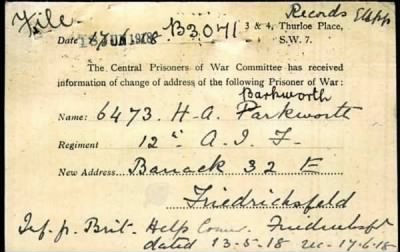 File.
Records
B3071
3 & 4, Thurloe Place,
Date 18 JUN 1918
S.W. 7.
The Central Prisoners of War Committee has received
information of change of address of the following Prisoner of War:
Barkworth
Name: 6473. H. A. Parkworth
Regiment 12th A. I. F
New Address Barrack 32 E
Friedrichsfeld
Inf. p. Brit. Help Comm. Friedrichsft
dated 13-5-18 rec- 17-6-18